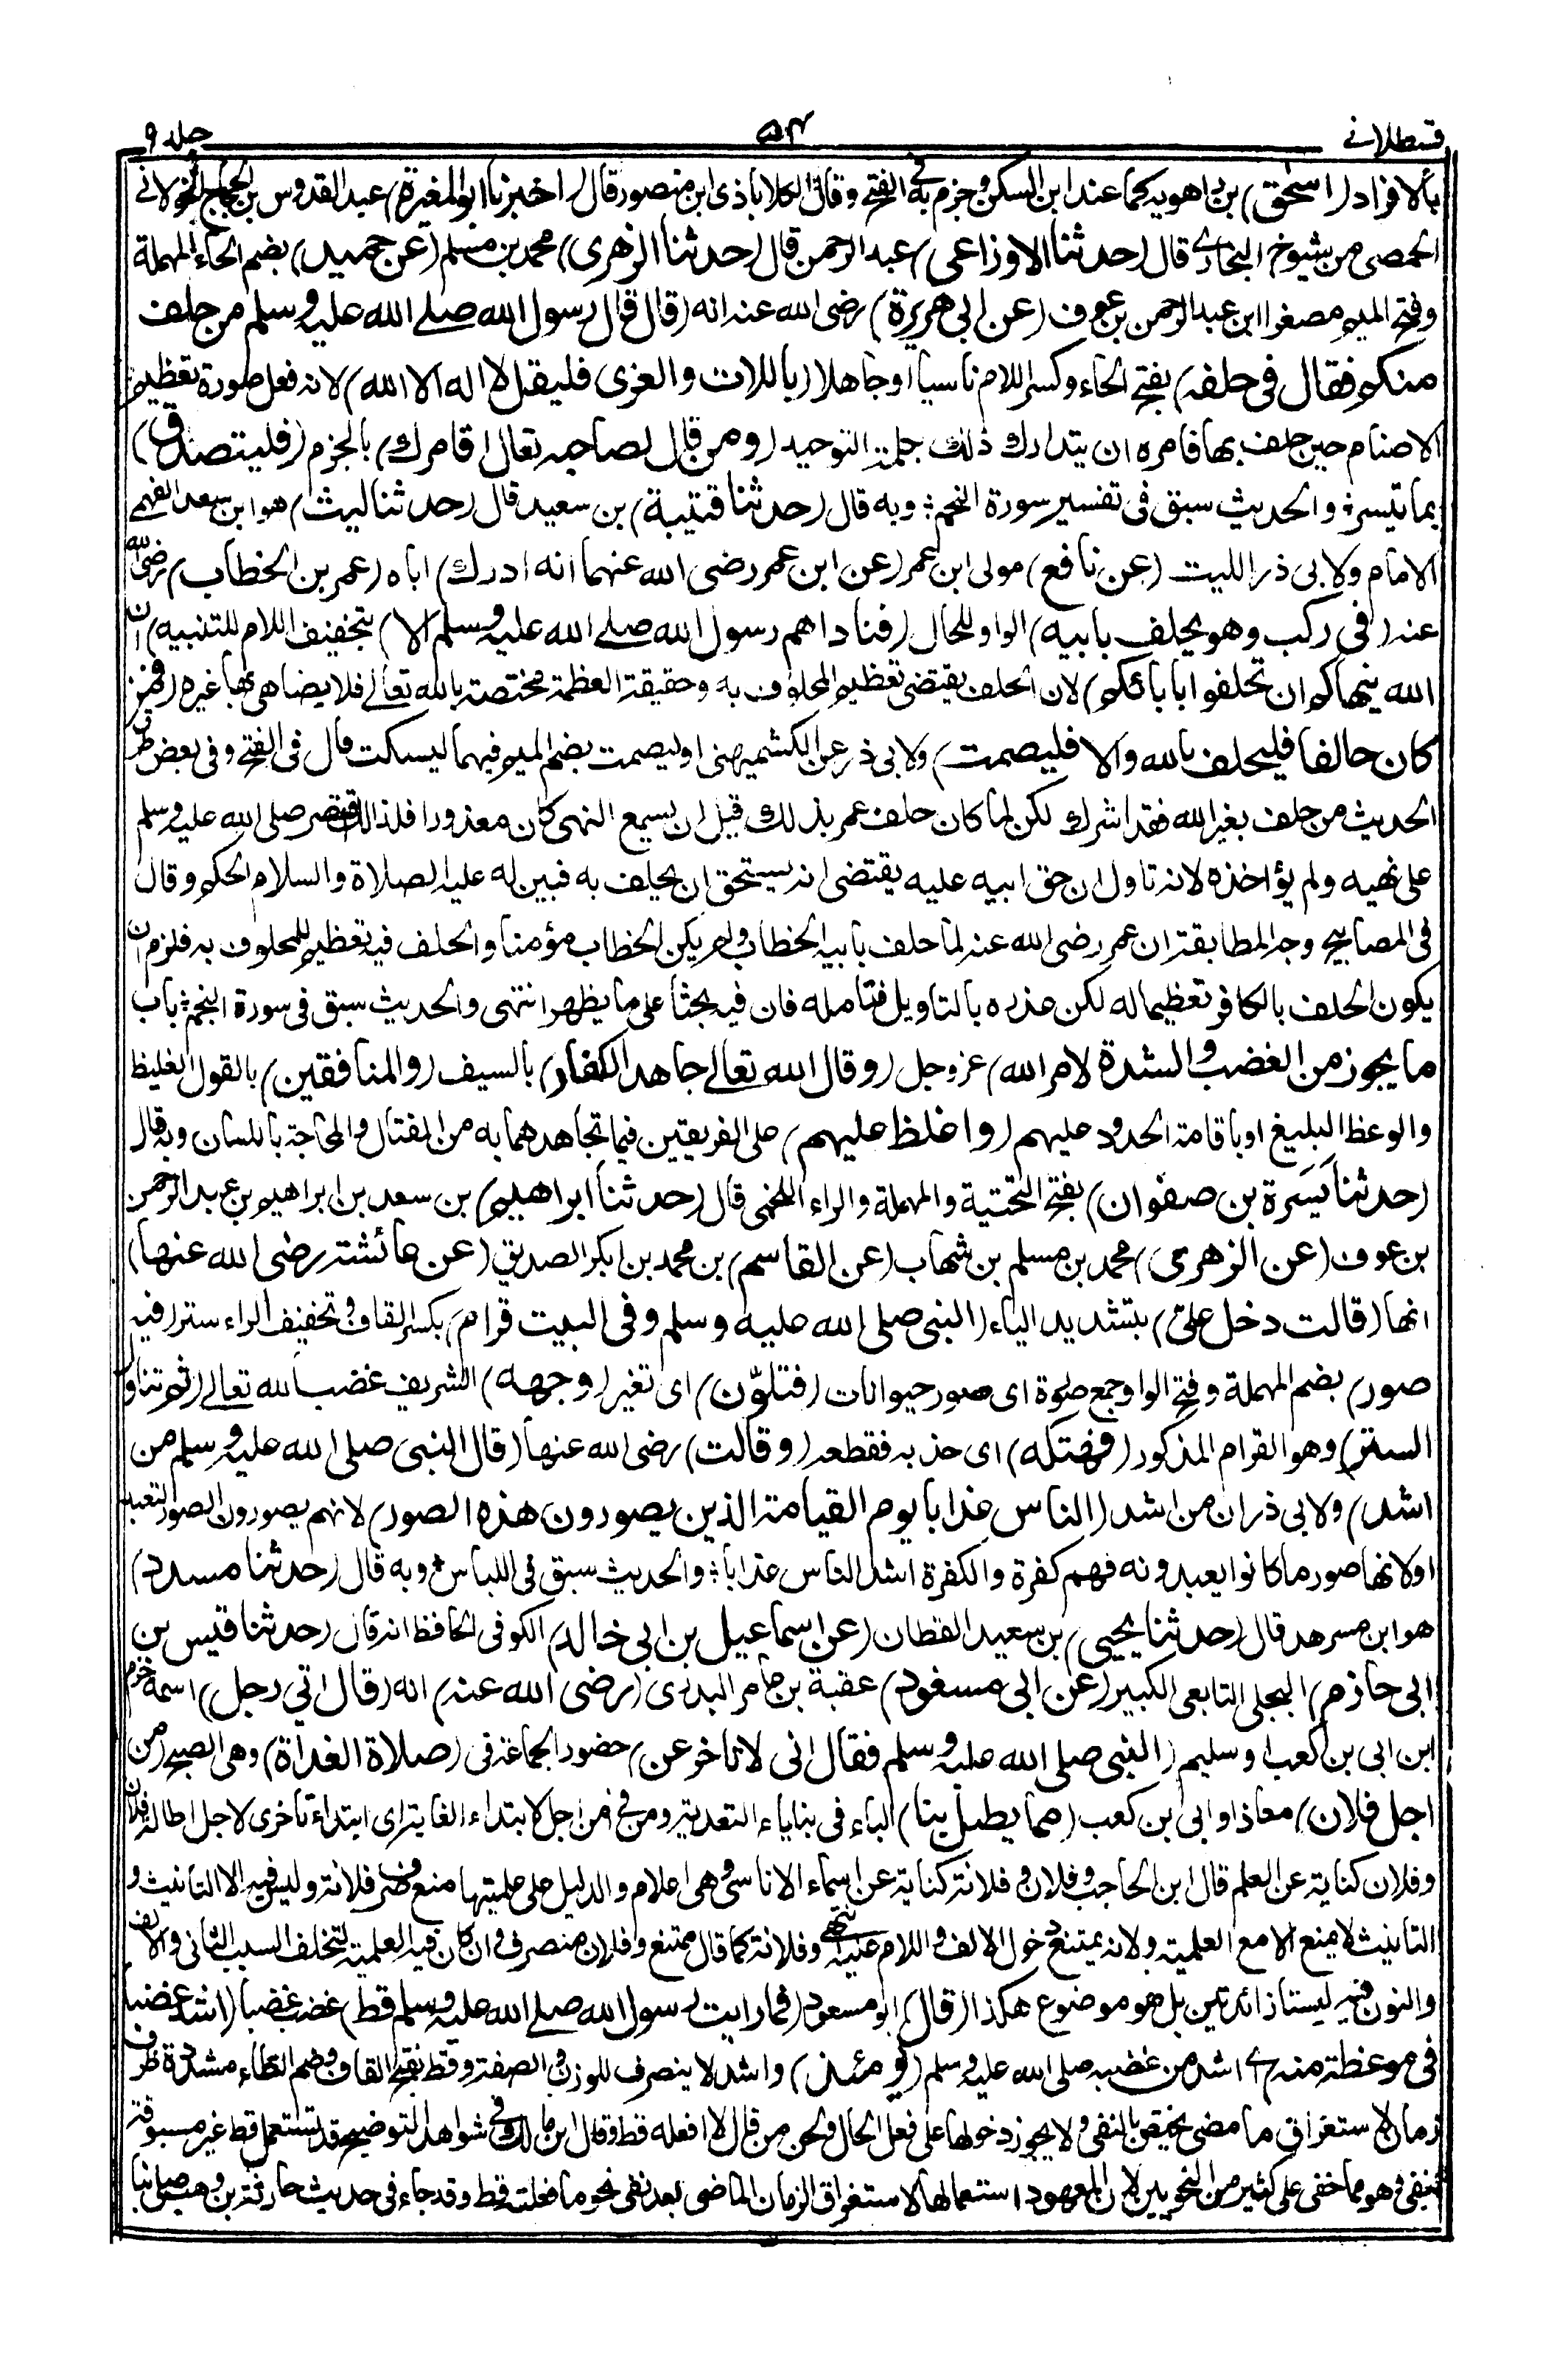 قسطلانے ٥٤ جلد ٩
بالافراد (اسحق) بن راهويه كما عند ابن السكن وجزم به في الفتح وقال الكلاباذى ابن منصور قال (اخبرنا ابو المغيرة) عبد القدوس بن الحجاج الخولانى
الحمصى من شيوخ البخارى قال (حدثنا الاوزاعى) عبد الرحمن قال (حدثنا الزهرى) محمد بن مسلم (عن حميد) بضم الحاء المهملة
وفتح الميم مصغرا ابن عبد الرحمن بن عوف (عن ابى هريرة) رضى الله عنه انه (قال قال رسول الله صلے الله عليه وسلم من حلف
منكم فقال فى حلفه) بفتح الحاء وكسر اللام ناسيا اوجاهلا (باللات والعزى فليقل لا اله الا الله) لانه فعل صورة تعظيم
الاصنام حين حلف بها فامره ان يتدارك ذلك بكلمة التوحيد (ومن قال لصاحبه تعال اقامرك) بالجزم (فليتصدق)
بما تيسر؛ والحديث سبق فى تفسير سورة النجم؛ وبه قال (حدثنا قتيبة) بن سعيد قال (حدثنا ليث) هو ابن سعد الفهمى
الامام ولابى ذر الليث (عن نافع) مولى ابن عمر (عن ابن عمر رضى الله عنهما انه ادرك) اباه (عمر بن الخطاب) رضى الله
عنه (فى ركب وهو يحلف بابيه) الواو للحال (فناداهم رسول الله صلے الله عليه وسلم الا) بتخفيف اللام للتنبيه (ان
الله ينهاكم ان تحلفوا بابائكم) لان الحلف يقتضى تعظيم المحلوف به وحقيقة العظمة مختصة بالله تعالے فلا يضاهى بها غيره (فمن
كان حالفا فليحلف بالله والا فليصمت) ولابى ذر عن الكشميهنى اوليصمت بضم الميم فيهما ليسكت قال فى الفتح وفى بعض طرق
الحديث من حلف بغير الله فقد اشرك لكن لما كان حلف عمر بذلك قبل ان يسمع النهى كان معذورا فلذالك اقتصر صلى الله عليه وسلم
على نهيه ولم يؤاخذه لانه تاول ان حق ابيه عليه يقتضى انه يستحق ان يحلف به فبين له عليه الصلاة والسلام الحكم وقال
فى المصابيح وجه المطابقة ان عمر رضى الله عنه لما حلف بابيه الخطاب ولم يكن الخطاب مؤمنا والحلف فيه تعظيم للمحلوف به فلزم ان
يكون الحلف بالكافر تعظيما له لكن عذره بالتاويل فتامله فان فيه بحثا على ما يظهر انتهى والحديث سبق فى سورة النجم؛ باب
ما يجوز من الغضب والشدة لامر الله) عز وجل (وقال الله تعالے جاهد الكفار) بالسيف (والمنافقين) بالقول الغليظ
والوعظ البليغ اوباقامة الحدود عليهم (واغلظ عليهم) على الفريقين فيما تجاهدهما به من القتال والمحاجة باللسان وبه قال
(حدثنا يَسَرة بن صفوان) بفتح التحتية والمهملة والراء اللخمى قال (حدثنا ابراهيم) بن سعد بن ابراهيم بن عبد الرحمن
بن عوف (عن الزهرى) محمد بن مسلم بن شهاب (عن القاسم) بن محمد بن ابكر الصديق (عن عائشة رضى الله عنها)
انها (قالت دخل علىّ) بتشديد الياء (النبى صلى الله عليه وسلم وفى البيت قرام) بكسر القاف وتخفيف الراء ستر (فيه
صور) بضم المهملة وفتح الواو جمع صورة اى صور حيوانات (فتلوّن) اى تغير (وجهه) الشريف غضبا لله تعالے (ثم تناول
الستر) وهو القرام المذكور (فهتكه) اى جذبه فقطعه (وقالت) رضى الله عنها (قال النبى صلى الله عليه وسلم من
اشد) ولابى ذر ان من اشد (الناس عذابا يوم القيامة الذين يصورون هذه الصور) لانهم يصورون الصور لتعبد
اولانها صور ما كانوا يعبدونه فهم كفرة والكفرة اشد الناس عذابا؛ والحديث سبق فى اللباس؛ وبه قال (حدثنا مسدد)
هو ابن مسرهد قال (حدثنا يحيى) بن سعيد القطان (عن اسماعيل بن ابى خالد) الكوفى الحافظ انه قال (حدثنا قيس بن
ابى حازم) البجلى التابعى الكبير (عن ابى مسعود) عقبة بن عامر البدرى (رضى الله عنه) انه (قال اتى رجل) اسمه حزم
ابن ابى بن كعب او سليم (النبى صلى الله عليه وسلم فقال انى لاتاخر عن) حضور الجماعة فى (صلاة الغداة) وهى الصبح (من
اجل فلان) معاذ او ابى بن كعب (مما يطيل بنا) الباء فى بنا ياء التعدية ومن في من اجل لابتداء الغاية اى ابتداء تاخرى لاجل اطالة فلان
وفلان كناية عن العلم قال ابن الحاجب وفلان وفلانة كناية عن اسماء الاناسى وهى اعلام والدليل على علميتها منع صرف فلانة وليس فيه الا التانيث و
التانيث لا يمنع الا مع العلمية ولانه يمتنع دخول الالف واللام عليه انتهى وفلانة كما قال ممتنع وفلان منصرف وان كان فيه العلمية لتخلف السبب الثانى والالف
والنون فيه ليستا زائدتين بل هو موضوع هكذا (قال) ابو مسعود (فما رايت رسول الله صلے الله عليه وسلم قط) غضب غضبا (اشد غضبا
فى موعظة منه) اى اشد من غضبه صلى الله عليه وسلم (يومئذ) واشد لا ينصرف للوزن والصفة وقط بفتح القاف وضم الطاء مشددة ظرف
زمان لاستغراق ما مضى يختص بالنفى ولا يجوز دخولها على فعل الحال ولحن من قال لا افعله قط وقال ابن مالك في شواهد التوضيح قد تستعمل قط غير مسبوقة
بنفى وهو مما خفى على كثير من النحويين لان المعهود استعمالها لاستغراق الزمان الماضى بعد نفى نحو ما فعلته قط وقد جاء فى حديث حارثة بن وهب صلى بنا